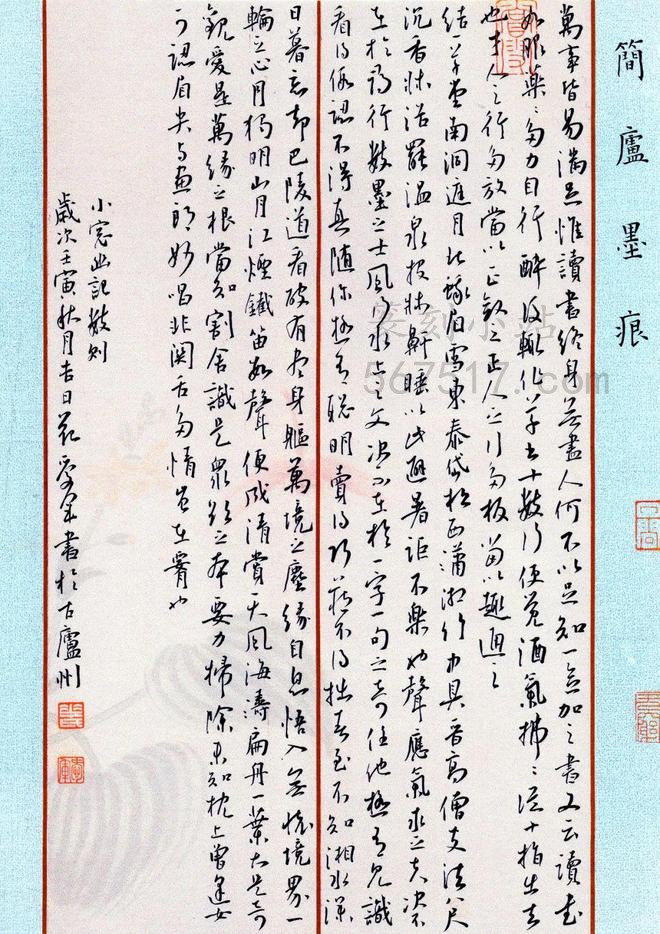 簡廬墨痕
萬事皆易滿足惟讀書終身無盡人何不以足知一念加之書又云讀書
如服藥藥多力自行醉後輒作草書十數行便覺酒氣拂拂從十指出去
也才人之行多放當以正斂之正人之行多板當以趣通之
結一草堂南洞庭月北蛾眉雪東泰岱松西瀟湘竹中具晉高僧支法八尺
沉香牀浴罷溫泉投牀鼾睡以此避暑詎不樂也聲應氣求之夫決不
在於尋行數墨之士風行水上之文決不在於一字一句之奇任他極有見識
看得假認不得真隨你極有聰明賣得巧藏不得拙春至不知湘水深
日暮忘卻巴陵道看破有盡身軀萬境之塵緣自息悟入無懷境界一
輪之心月獨明山月江煙鐵笛數聲便成清賞天風海濤扁舟一葉大是奇
觀愛是萬緣之根當知割舍識是眾欲之本要力掃除未知枕上曾逢女
可認眉尖與畫郎妙唱非關舌多情豈在腰也
小窗幽記數則
歲次壬寅秋月吉日 書於古廬州
篆刻小站
567517.com